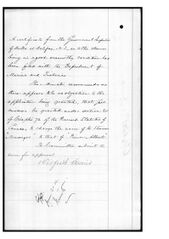 A certificate from the Government Inspector
of Hulls at Halifax, N.S., as to the Steamer
being in good seaworthy condition has
been filed with the Department of
Marine and Fisheries.
The Minister recommends as
there appears to be no objection to the
application being granted, that per-
mission be granted under section
of Chapter 72 of the Revised Statutes of
Canada, to change the name of the Steamer
to that of "Prince Albert".
The Committee submit the
same for approval